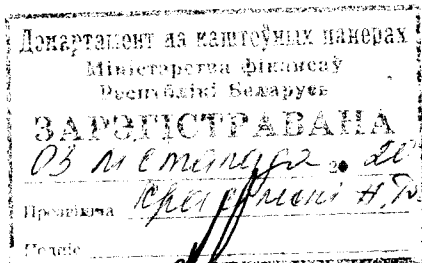 Дэпартамент па каштоўных паперах
Міністэрства фінансаў
Рэспублікі Беларусь
ЗАРЭГІСТРАВАНА
03 лістапада 20
Прозвішча
Подпіс